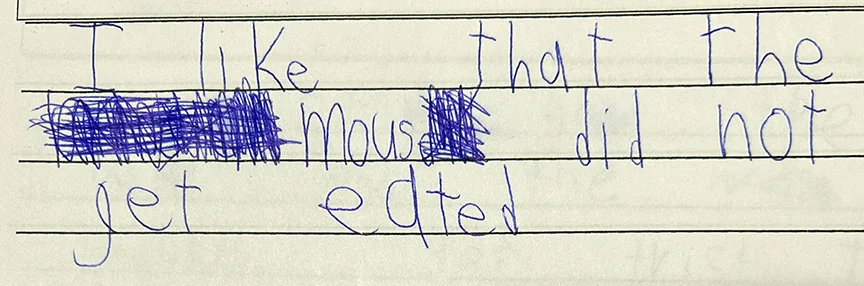 I like that the
mous did not
get eated